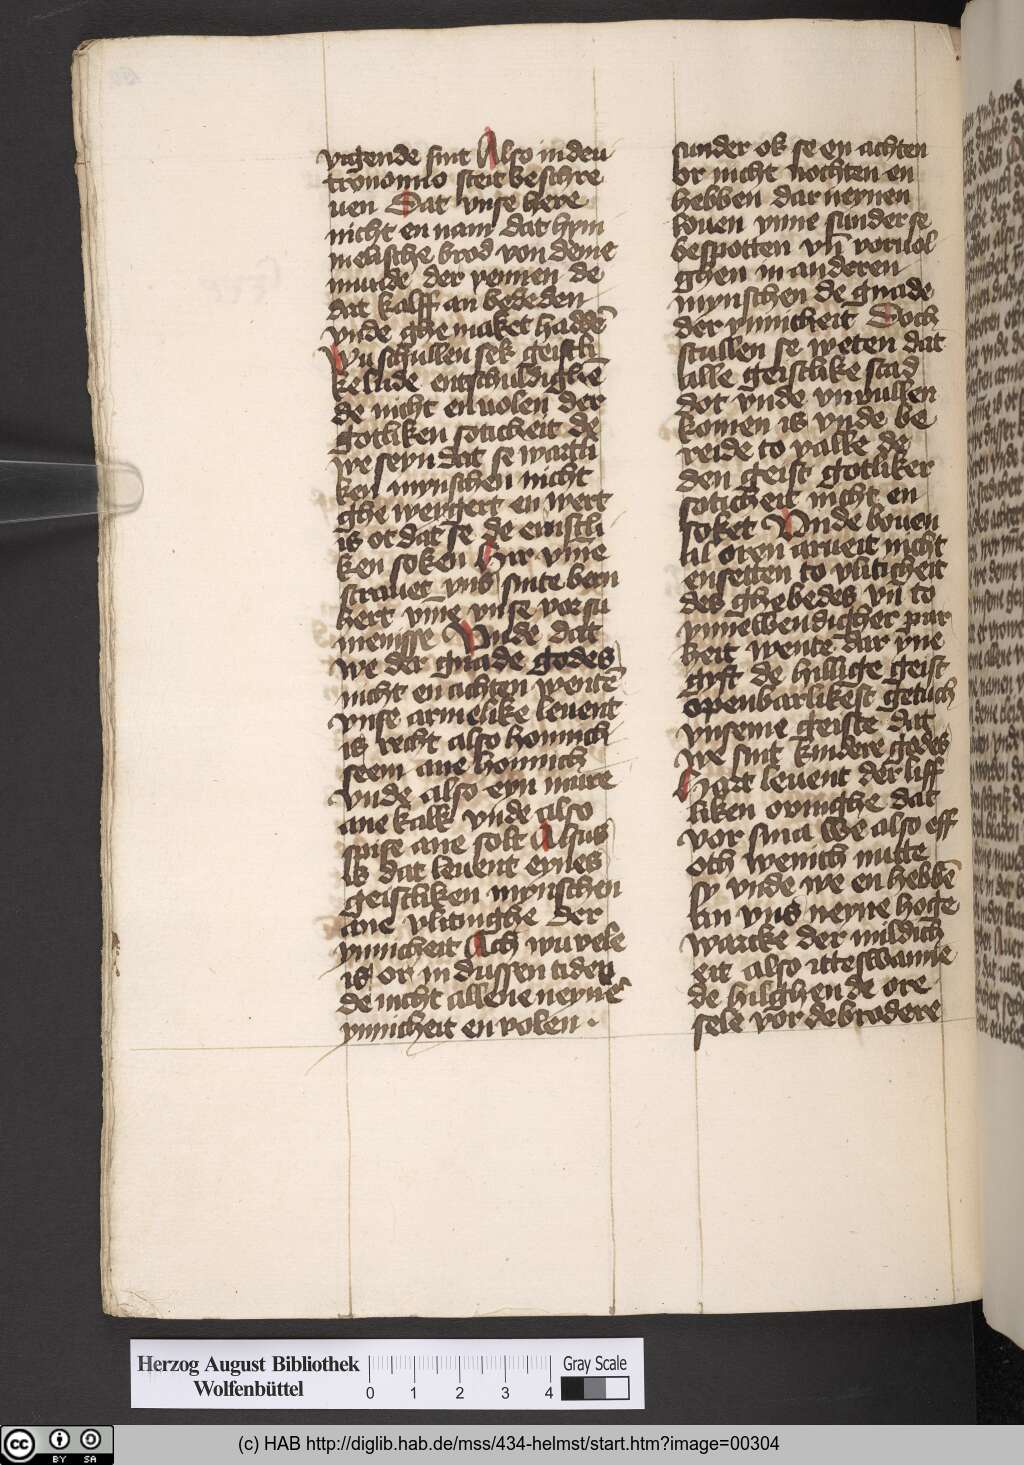 vigende sint Also in deu
tronomio steit beschre
uen Dat vnse here
nicht en nam dat hym
melische brod von deme
munde der yennen de
dat kalff an bededen
vnde ghe maket haddē
Wu schullen sek geistli
ke lude entschuldighē
de nicht en uolen der
gotliken soticheit de
we seyn dat se wargli
ken mynschen nicht
ghe weygert en wert
is ot dat se de ernstli
ken soken Hir vmē
straffet vns sinte bern
hert vme vnse vor su
menisse Vnde dat
we der gnade godes
nicht en achten wentē
vnse armelike leuent
is recht also honnich
seem ane honnich
vnde also eyn mure
ane kalk vnde also
spise ane solt Alsus
is dat leuent eynes
geistliken mynschen
ane vlitinghe der
ynnicheit Ach wu vele
is or in dussen tiden
de nicht allene neynē
ynnicheit en volen .
sunder ok se en achten
or nicht nochten en
hebben dar neynen
louen ynne sunder se
bespotten vn̄ voruol
ghen in anderen
mynschen de gnade
der ynnicheit Doch
scullen se weten dat
lille geistlike stad
dot vnde vnuullen
komen is vnde be
reide to valle de
den geist gotliker
soticheit nicht en
soket Vnde bouen
lil oren arueit nicht
en setten to vliticheit
des ghebedes vn̄ to
ynnewendicher pur
heit wente dar yne
gyft de hillige geist
openbarlikest getuch
vnseme geiste dat
we sint kindere godes
Hart leuent der liff
liken ouinghe dat
vor sma we also eff
oth wenich nutte
sy vnde we en hebbē
lin vns neyne hoge
warcke der mildich
eit also itteswanne
de hilghen de ore
sele vor de brodere
Herzog August Bibliothek
Wolfenbüttel
0 1 2 3 4
Gray Scale
(c) HAB http://diglib.hab.de/mss/434-helmst/start.htm?image=00304
cc BY SA